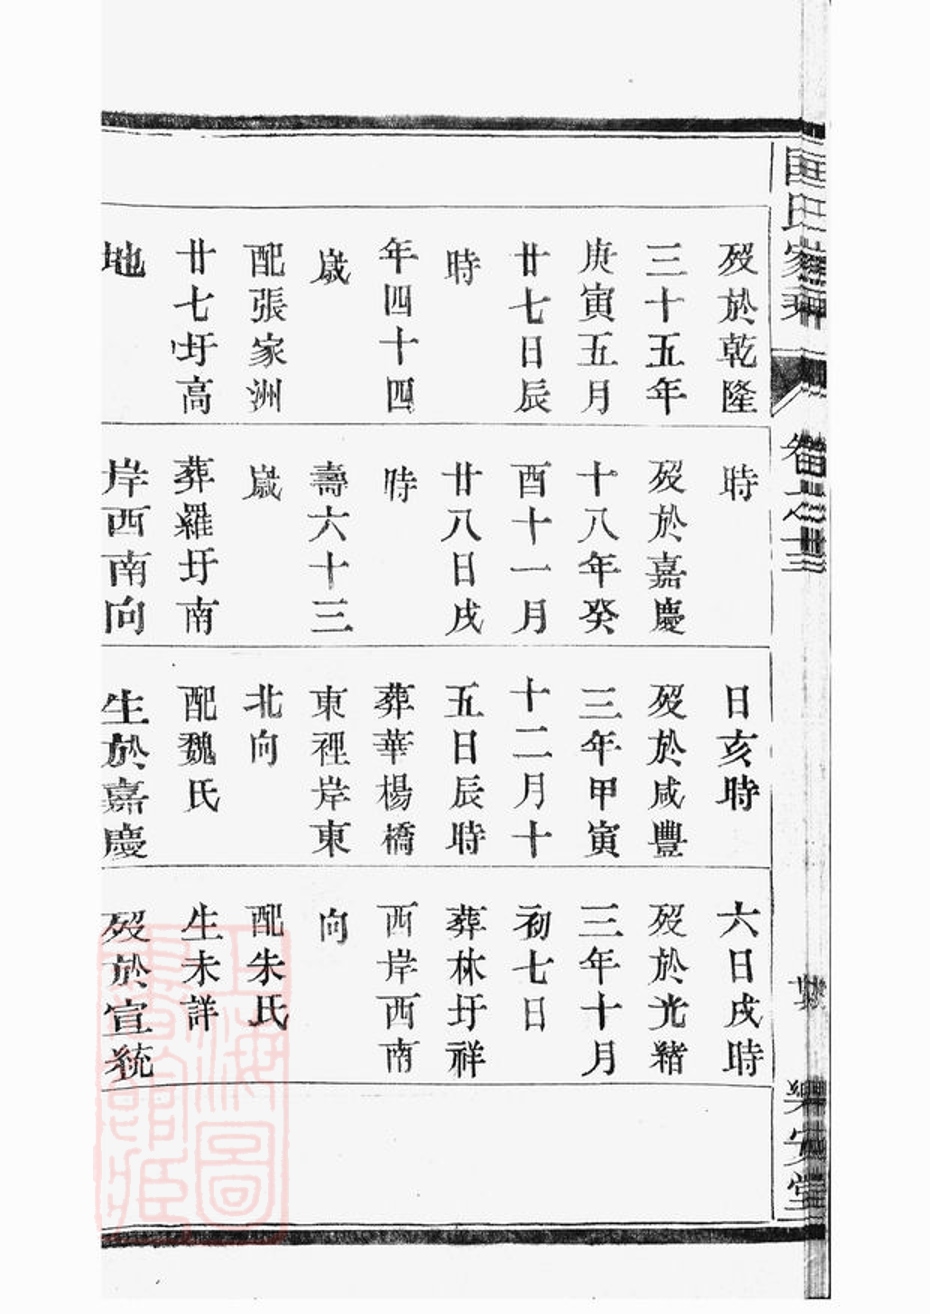 匡氏家乘
卷之十三
樂安堂
歿於乾隆
三十五年
庚寅五月
廿七日辰
時
年四十四
歲
配張家洲
廿七圩高
地
時
歿於嘉慶
十八年癸
酉十一月
廿八日戌
時
壽六十三
歲
葬羅圩南
岸西南向
日亥時
歿於咸豐
三年甲寅
十二月十
五日辰時
葬華楊橋
東裡岸東
北向
配魏氏
生於嘉慶
六日戌時
歿於光緒
三年十月
初七日
葬林圩祥
西岸西南
向
配朱氏
生未詳
歿於宣統
上海圖
書館藏